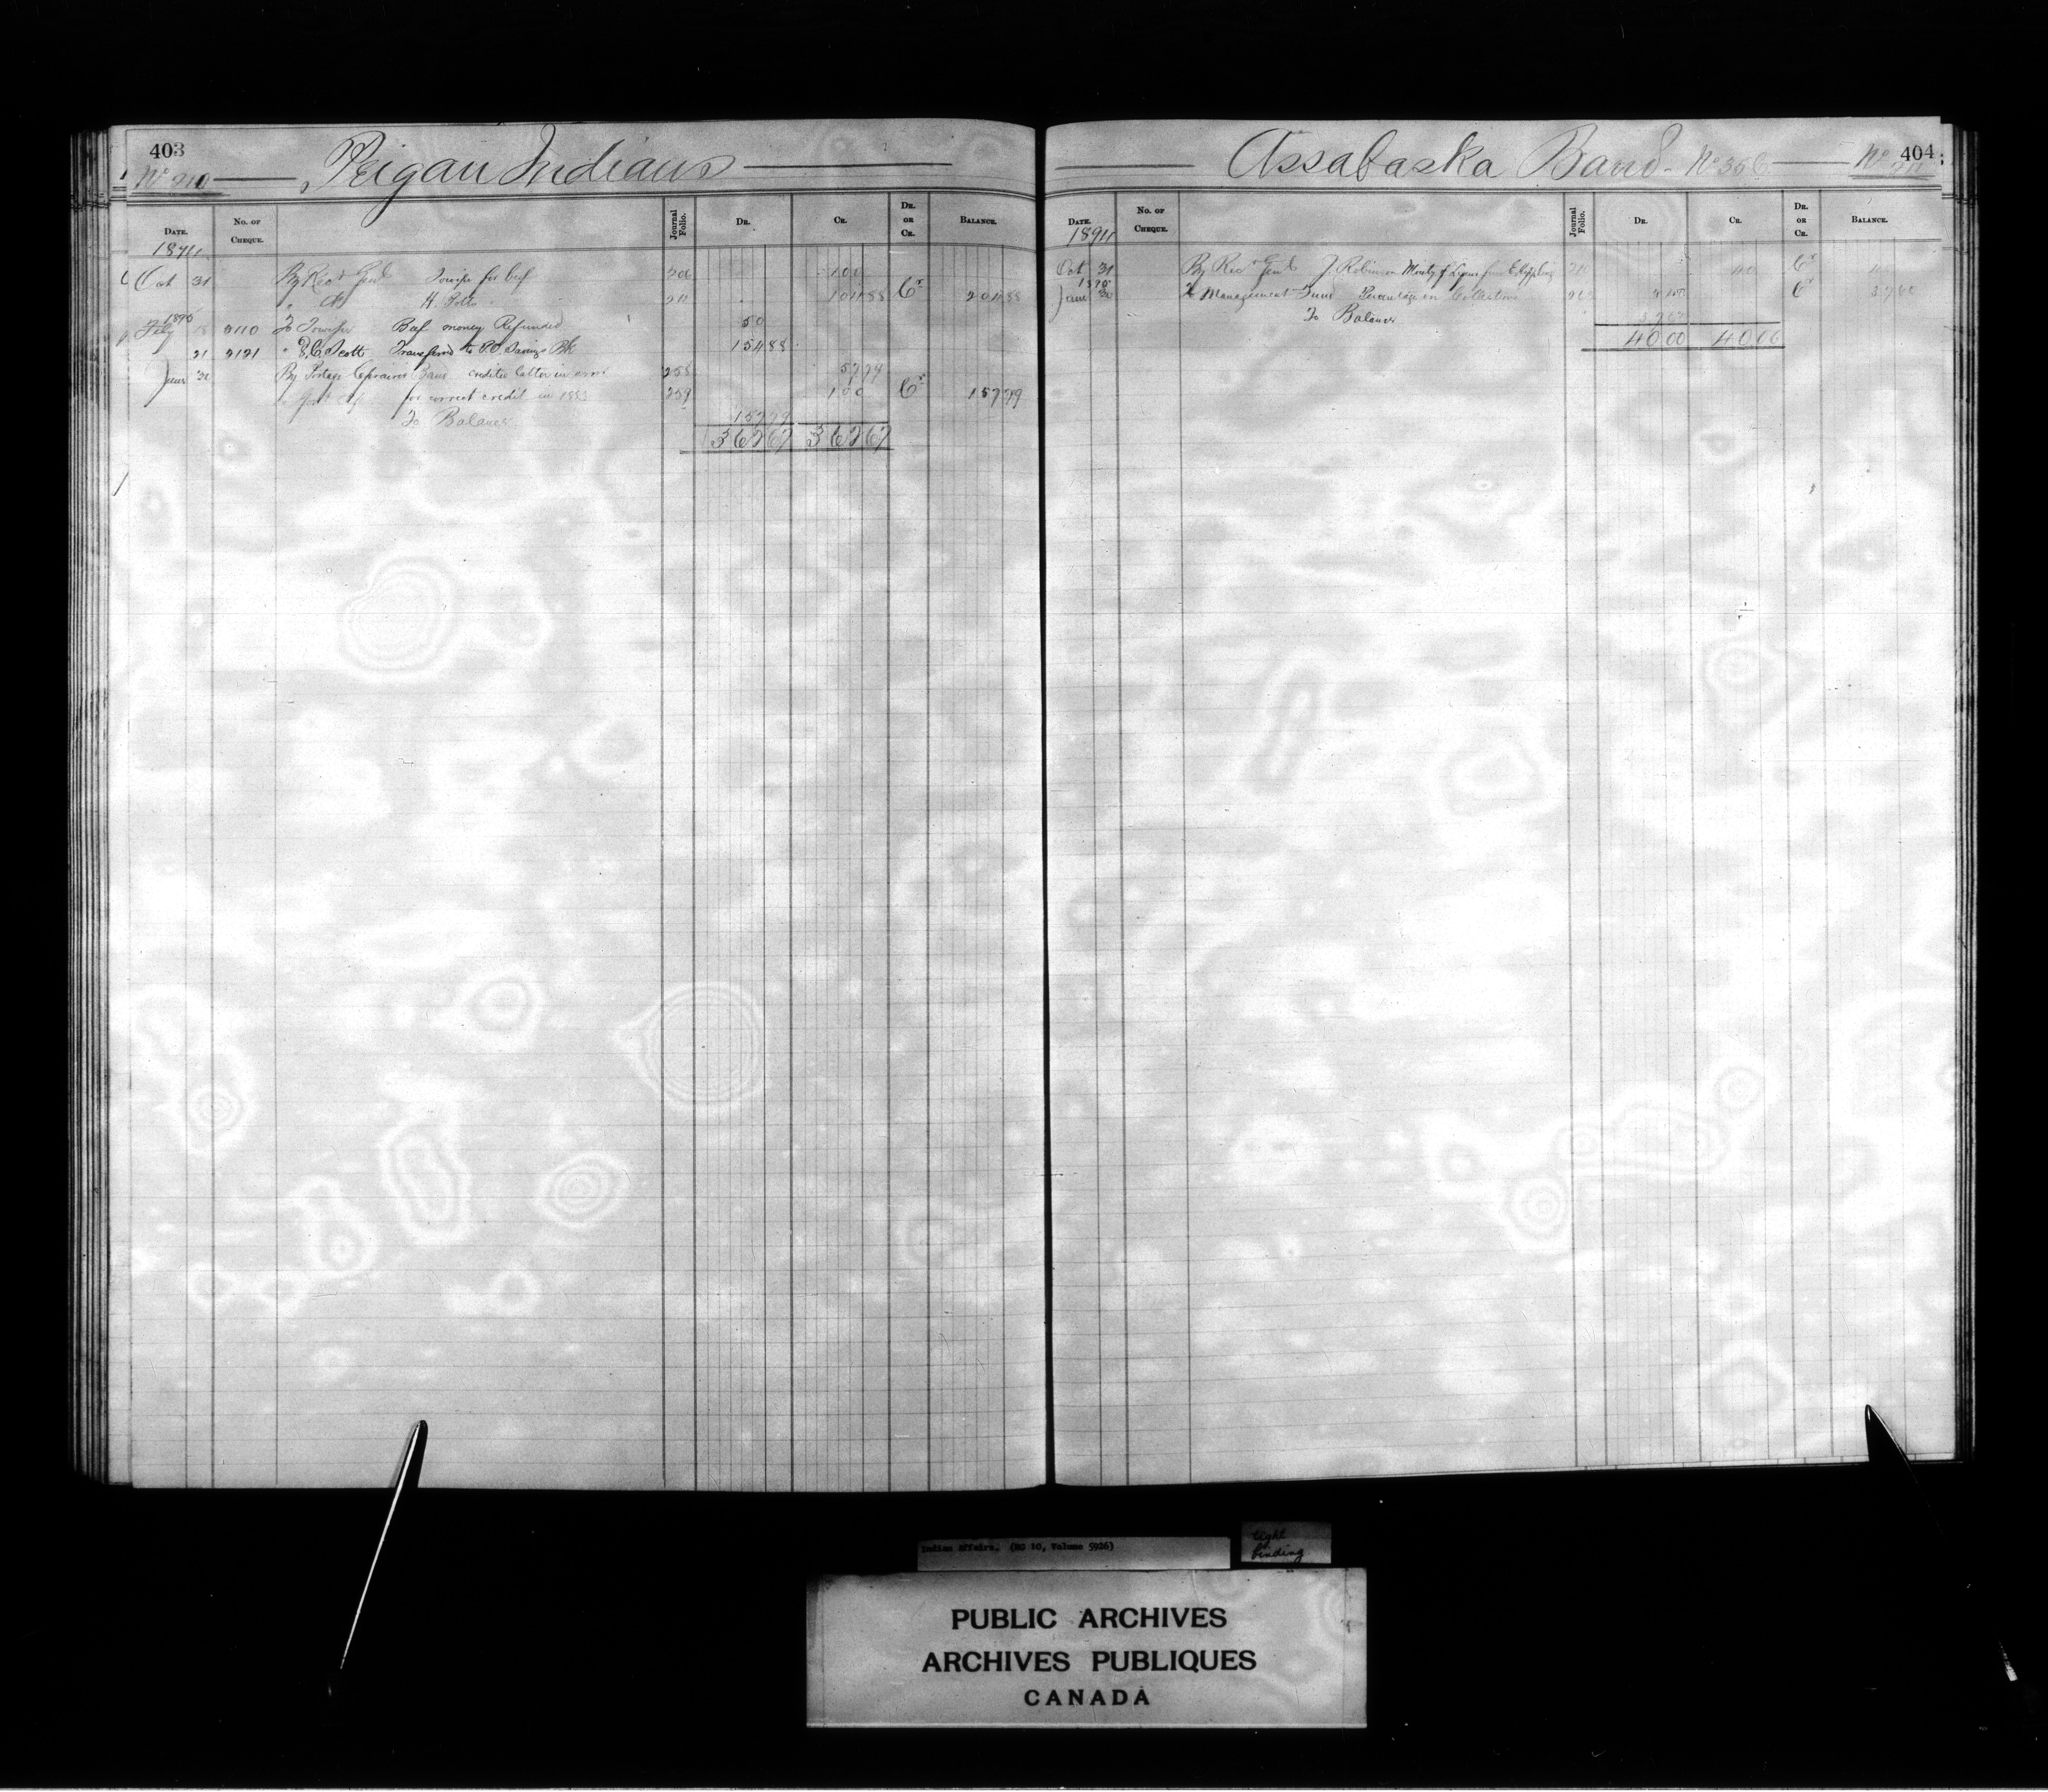 403
No 210 Peigan Indians
DATE. No. OF CHEQUE. Journal Folio. DR. CR. DR. OR CR. BALANCE.
1894
Oct 31 By Recr Genl for beef 206 100
" H. Potts " 211 104 88 Cr 204 88
1895
Feby 18 2110 To Beef money Refunded 50
21 2121 " D.C. Scott Transferred to P.O. Savings Bk 154 88
June 30 By Portage credited latter in error 258 57 79
for correct credit in 1883 259 100 Cr 157 79
To Balance 157 79
362 67 362 67
Assabaska Band No 35 404
DATE. No. OF CHEQUE. Journal Folio. DR. CR. DR. OR CR. BALANCE.
1894
Oct 31 By Recr Genl J. Robinson 40 Cr
1895
June 30 To Management Fund Percentage on Collections Cr 37 60
To Balance
40 00 40 00
Indian Affairs. (RG 10, Volume 5926)
tight binding
PUBLIC ARCHIVES
ARCHIVES PUBLIQUES
CANADA